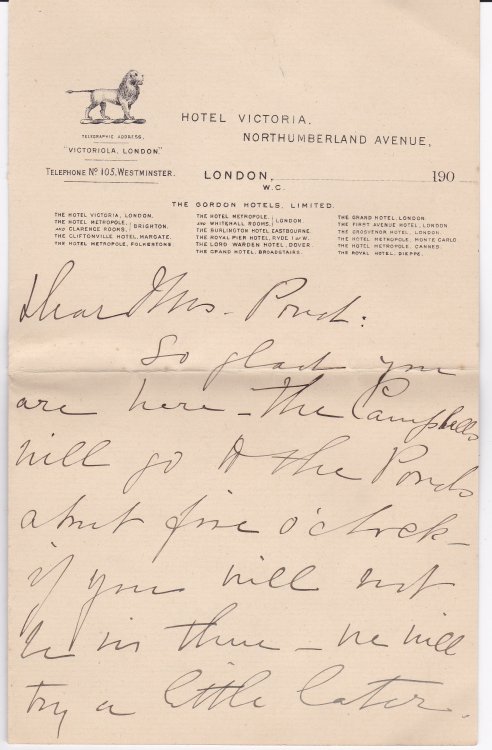 HOTEL VICTORIA.
NORTHUMBERLAND AVENUE,
TELEGRAPHIC ADDRESS.
"VICTORIOLA, LONDON."
TELEPHONE Nº 105, WESTMINSTER.
LONDON, 190
W.C.
THE GORDON HOTELS, LIMITED.
THE HOTEL VICTORIA, LONDON.
THE HOTEL METROPOLE,
AND CLARENCE ROOMS, } BRIGHTON.
THE CLIFTONVILLE HOTEL, MARGATE.
THE HOTEL METROPOLE, FOLKESTONE
THE HOTEL METROPOLE,
AND WHITEHALL ROOMS, } LONDON.
THE BURLINGTON HOTEL, EASTBOURNE.
THE ROYAL PIER HOTEL, RYDE, I OF W.
THE LORD WARDEN HOTEL, DOVER.
THE GRAND HOTEL, BROADSTAIRS.
THE GRAND HOTEL, LONDON.
THE FIRST AVENUE HOTEL, LONDON
THE GROSVENOR HOTEL, LONDON.
THE HOTEL METROPOLE, MONTE CARLO
THE HOTEL METROPOLE, CANNES.
THE ROYAL HOTEL, DIEPPE.
Dear Mrs. Pond:
So glad you
are here – The Campbells
will go to the Ponds
about five o'clock –
if you will not
be in then – we will
try a little later.